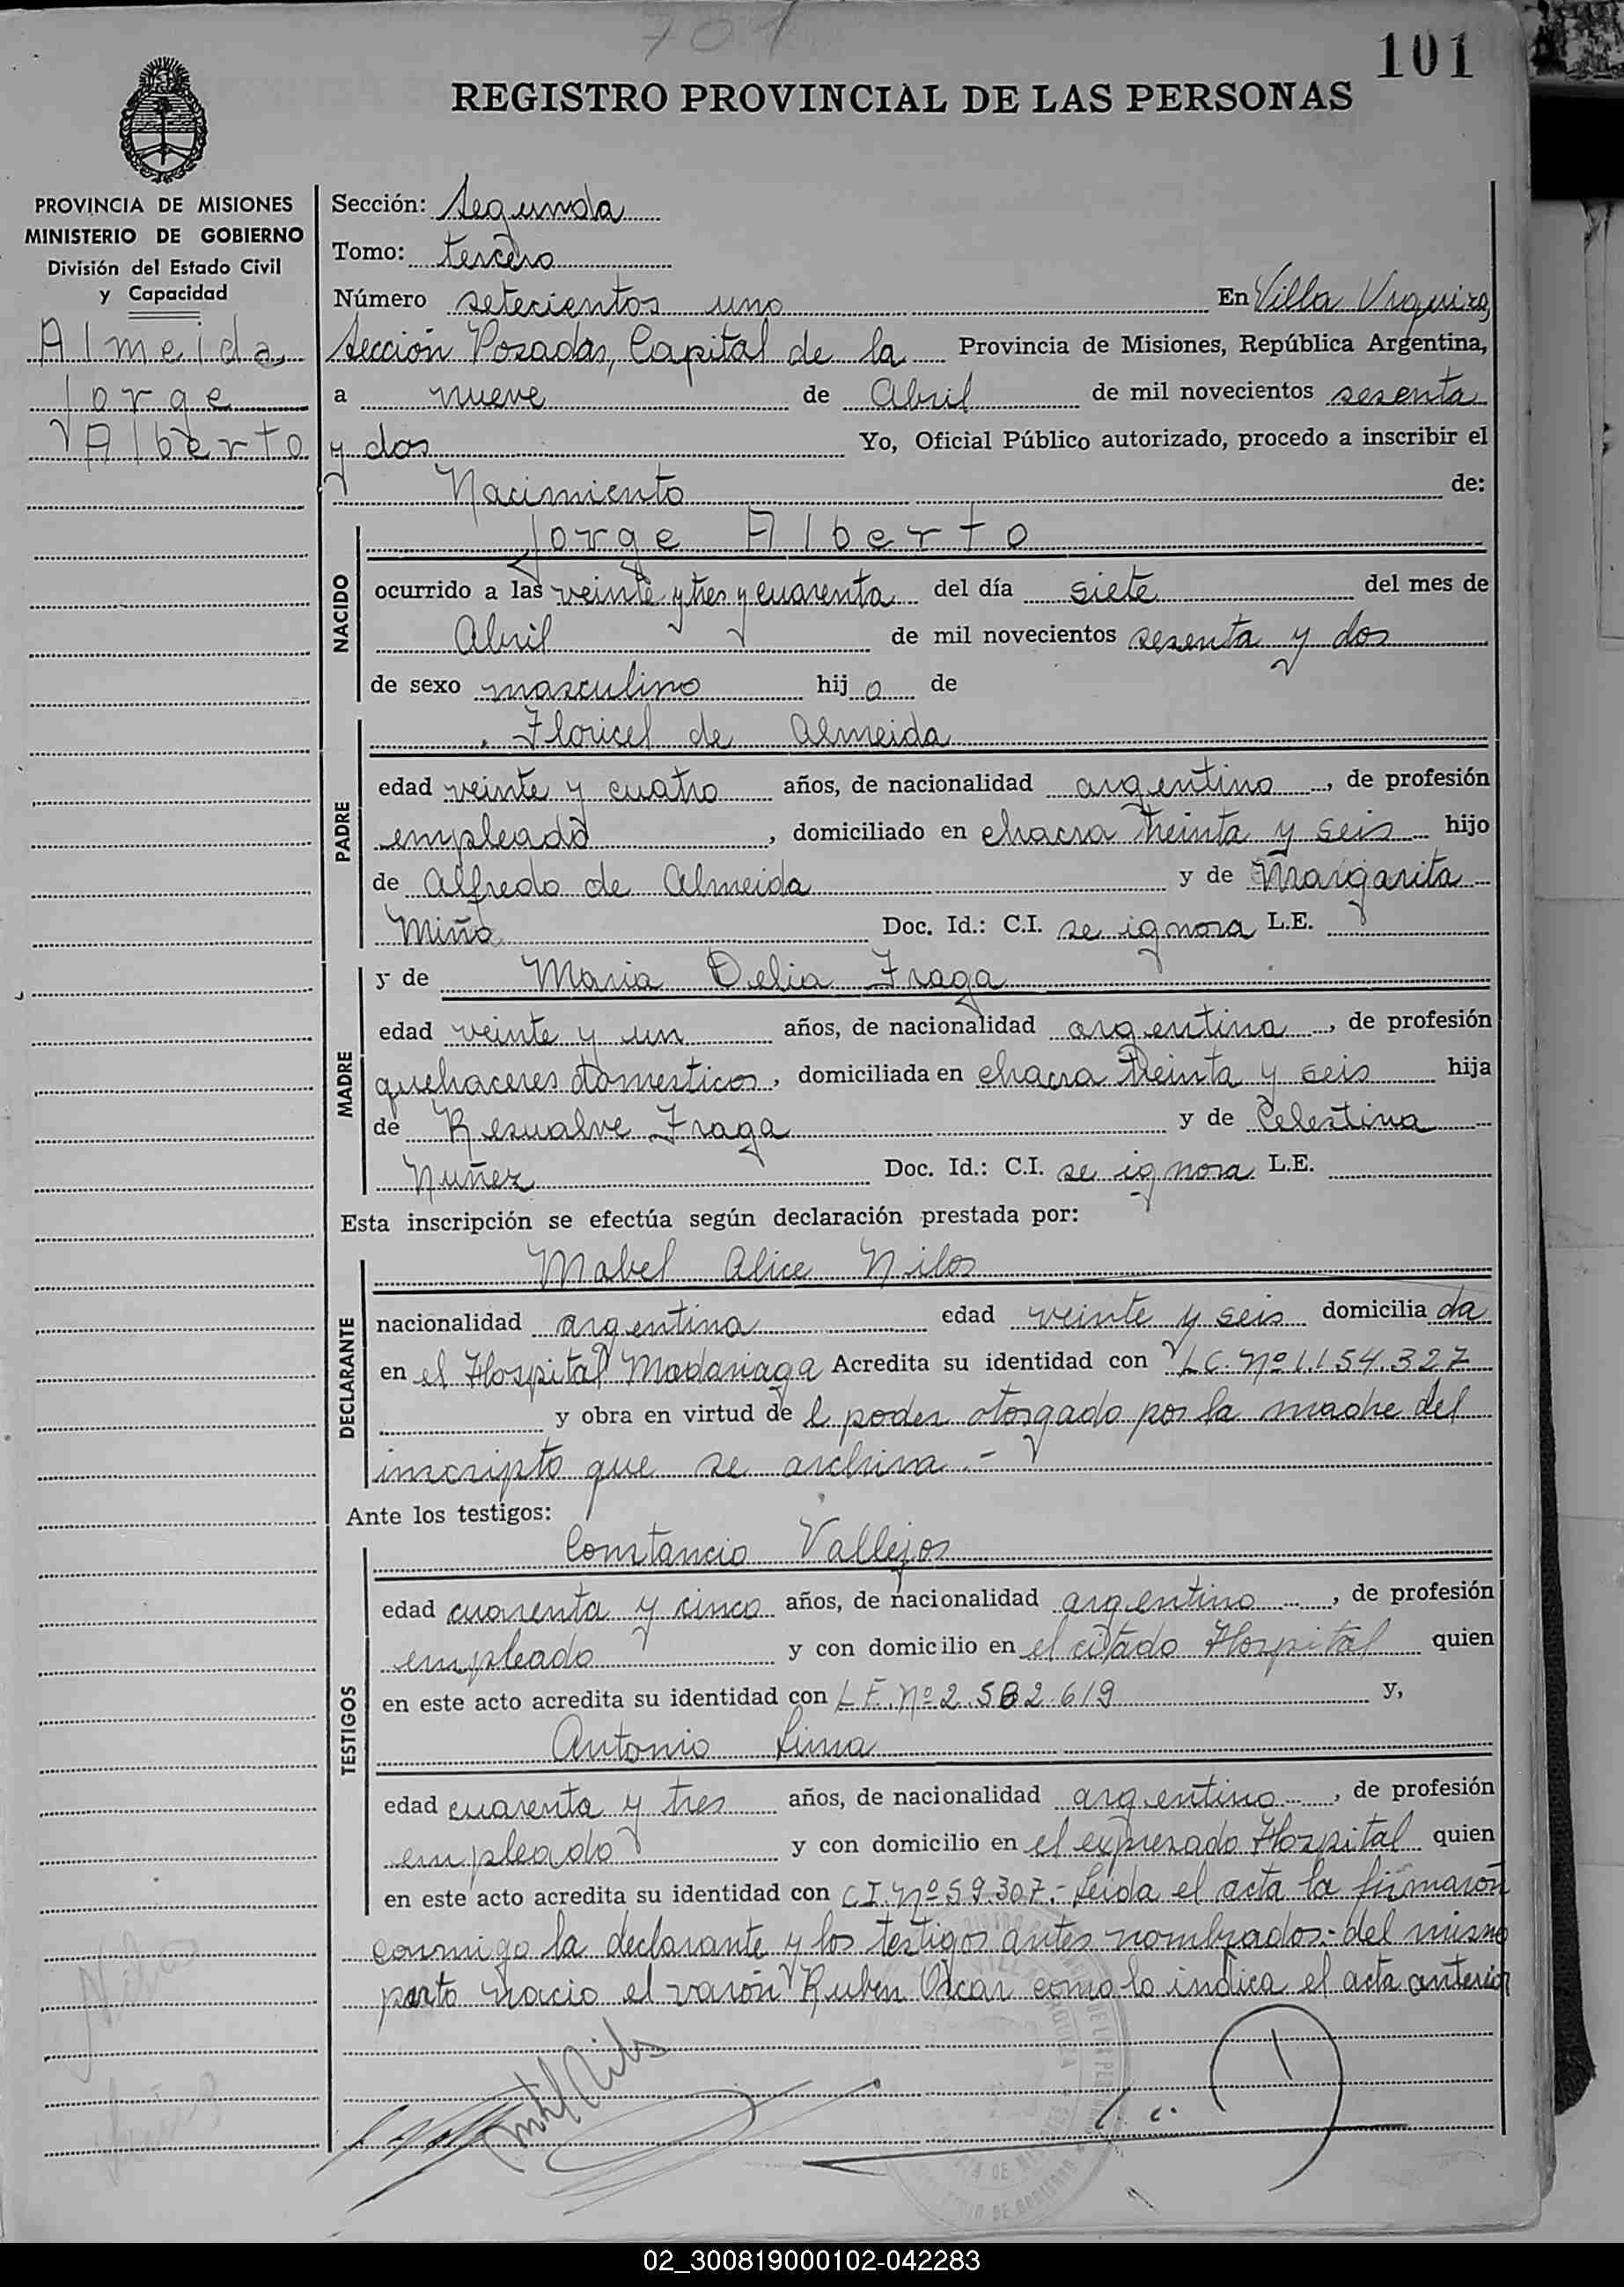 701
101
REGISTRO PROVINCIAL DE LAS PERSONAS
PROVINCIA DE MISIONES
MINISTERIO DE GOBIERNO
División del Estado Civil
y Capacidad
Almeida,
Jorge
Alberto
Sección: Segunda
Tomo: tercero
Número setecientos uno En Villa Urquiza,
Sección Posadas, Capital de la Provincia de Misiones, República Argentina,
a nueve de Abril de mil novecientos sesenta
y dos Yo, Oficial Público autorizado, procedo a inscribir el
Nacimiento de:
NACIDO
Jorge Alberto
ocurrido a las veinte y tres y cuarenta del día siete del mes de
Abril de mil novecientos sesenta y dos
de sexo masculino hijo de
PADRE
Floricel de Almeida
edad veinte y cuatro años, de nacionalidad argentino, de profesión
empleado, domiciliado en chacra treinta y seis hijo
de Alfredo de Almeida y de Margarita
Miño Doc. Id.: C.I. se ignora L.E.
MADRE
y de Maria Delia Fraga
edad veinte y un años, de nacionalidad argentina, de profesión
quehaceres domesticos, domiciliada en chacra treinta y seis hija
de Resualve Fraga y de Celestina
Nuñez Doc. Id.: C.I. se ignora L.E.
Esta inscripción se efectúa según declaración prestada por:
DECLARANTE
Mabel Alice Nilos
nacionalidad argentina edad veinte y seis domiciliada
en el Hospital Madariaga Acredita su identidad con L.C. Nº 1.154.327
y obra en virtud del poder otorgado por la madre del
inscripto que se archiva.-
Ante los testigos:
TESTIGOS
Constancio Vallejos
edad cuarenta y cinco años, de nacionalidad argentino, de profesión
empleado y con domicilio en el citado Hospital quien
en este acto acredita su identidad con L.E. Nº 2.582.619 y,
Antonio Lima
edad cuarenta y tres años, de nacionalidad argentino, de profesión
empleado y con domicilio en el expresado Hospital quien
en este acto acredita su identidad con C.I. Nº 59.307.- Leida el acta la firmaron
conmigo la declarante y los testigos antes nombrados.- del mismo
parto nacio el varón Ruben Oscar como lo indica el acta anterior
02_300819000102-042283